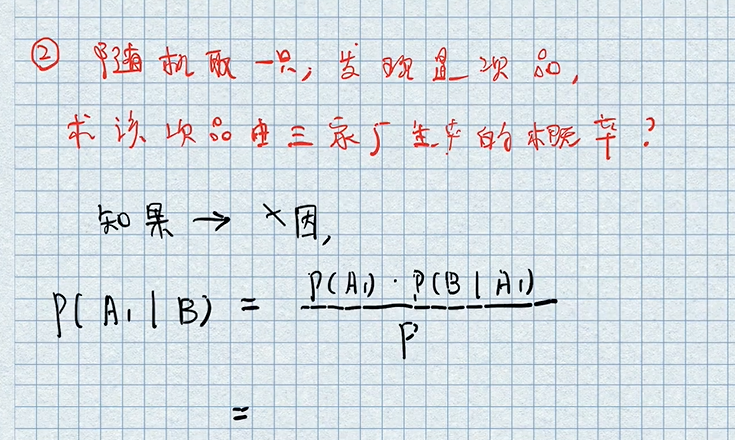 ② 随机取一只,发现是次品,
求该次品由三家厂生产的概率?
知果 → 因,
P(A₁|B) = P(A₁)·P(B|A₁) / P
=